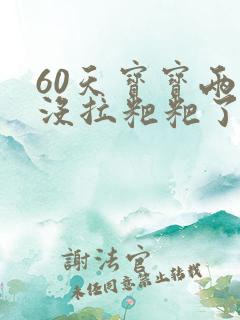 60天寶寶兩
沒拉粑粑了
謝法官
未經同意禁止轉載